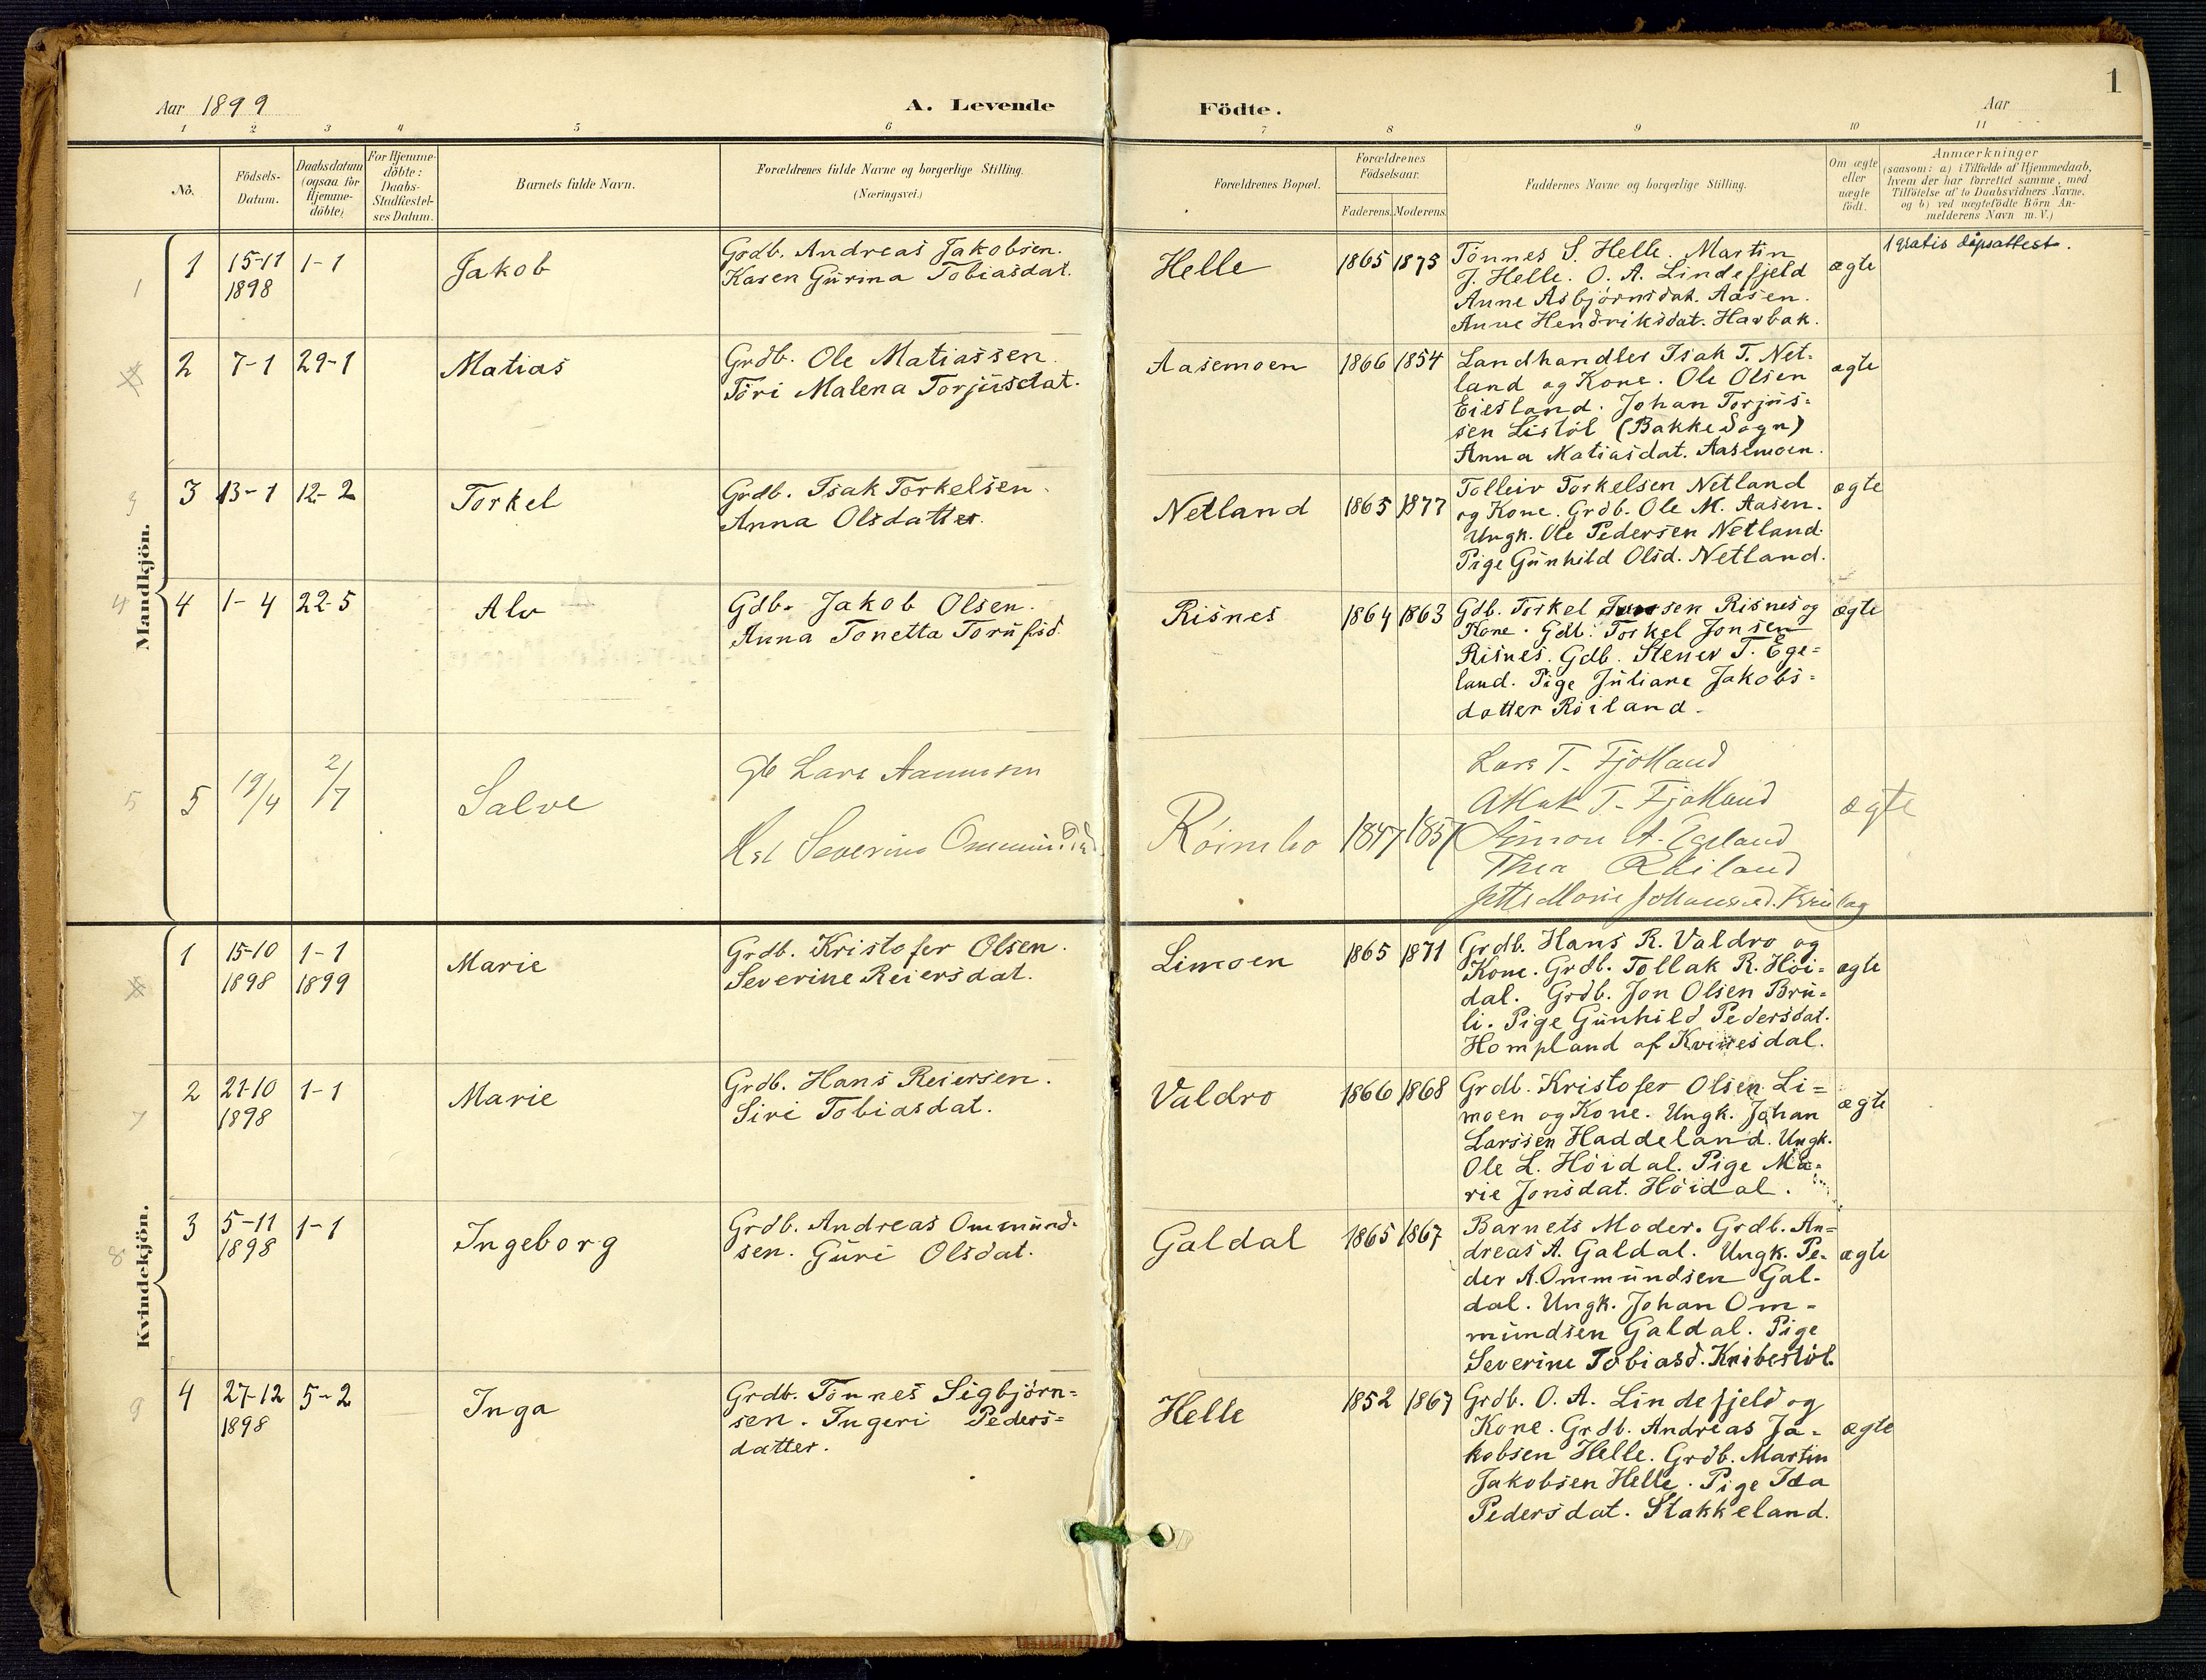 1
Aar 1899
A. Levende
Födte.
Aar
1 2 3 4 5 6 7 8 9 10 11
No.
Födsels-
Datum.
Daabsdatum
(ogsaa for
Hjemme-
döbte)
For Hjemme-
döbte:
Daabs-
Stadfæstel-
ses Datum.
Barnets fulde Navn.
Forældrenes fulde Navne og borgerlige Stilling.
(Næringsvei.)
Forældrenes Bopæl.
Forældrenes
Födselsaar.
Faderens. Moderens.
Faddernes Navne og borgerlige Stilling.
Om ægte
eller
uægte
födt.
Anmærkninger
(saasom: a) i Tilfælde af Hjemmedaab,
hvem der har forrettet samme, med
Tilföielse af to Daabsvidners Navne,
og b) ved uægtefödte Börn An-
melderens Navn m. V.)
Mandkjön.
1
1
15-11
1898
1-1
Jakob
Grdb. Andreas Jakobsen.
Karen Gürina Tobiasdat.
Helle
1865 1875
Tönnes S. Helle. Martin
J. Helle. O. A. Lindefjeld
Anne Asbjörnsdat. Aasen.
Anne Hendriksdat. Harbak.
ægte
1 gratis dåpsattest.
2
7-1
29-1
Matias
Grdb. Ole Matiassen.
Töri Malena Torjüsdat.
Aasemoen
1866 1854
Landhandler Isak T. Net-
land og Kone. Ole Olsen
Eiesland. Johan Torjüs-
sen Listöl (Bakke Sogn)
Anna Matiasdat. Aasemoen.
ægte
3
3
13-1
12-2
Torkel
Grdb. Isak Torkelsen.
Anna Olsdatter.
Netland
1865 1877
Tolleiv Torkelsen Netland
og Kone. Grdb. Ole M. Aasen.
Ungk. Ole Pedersen Netland.
Pige Günhild Olsd. Netland.
ægte
4
4
1-4
22-5
Alv
Gdb. Jakob Olsen.
Anna Tonetta
Risnes
1864 1863
Gdb. Torkel Risnes og
Kone. Gdb. Torkel Jonsen
Risnes. Gdb. Stener T. Ege-
land. Pige Jüliane Jakobs-
datter Röiland.
ægte
5
5
19/4
2/7
Salve
Gb Lars
Severine
1847 1857
Lars T. Fjotland
T. Fjotland
Simon A. Egeland
Thea
ægte
Kvindekjön.
1
15-10
1898
1-1
1899
Marie
Grdb. Kristofer Olsen.
Severine Reiersdat.
Limoen
1865 1871
Grdb. Hans R. Valdro og
Kone. Grdb. Tollak R. Höi-
dal. Grdb. Jon Olsen Brü-
li. Pige Günhild Pedersdat.
Hompland af Kvinesdal.
ægte
7
2
21-10
1898
1-1
Marie
Grdb. Hans Reiersen.
Siri Tobiasdat.
Valdro
1866 1868
Grdb. Kristofer Olsen Li-
moen og Kone. Ungk. Johan
Larssen Haddeland. Ungk.
Ole L. Höidal. Pige Ma-
rie Jonsdat. Höidal.
ægte
8
3
5-11
1898
1-1
Ingeborg
Grdb. Andreas Ommünd-
sen. Güri Olsdat.
Galdal
1865 1867
Barnets Moder. Grdb. An-
dreas A. Galdal. Ungk. Pe-
der A. Ommündsen Gal-
dal. Ungk. Johan Om-
mündsen Galdal. Pige
Severine Tobiasd. Knibestöl.
ægte
9
4
27-12
1898
5-2
Inga
Grdb. Tönnes Sigbjörn-
sen. Ingeri Peders-
datter.
Helle
1852 1867
Grdb. O. A. Lindefjeld og
Kone. Grdb. Andreas Ja-
kobsen Helle. Grdb. Martin
Jakobsen Helle. Pige Ida
Pedersdat. Stakkeland.
ægte